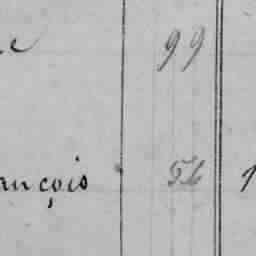 99
ançois 56 1